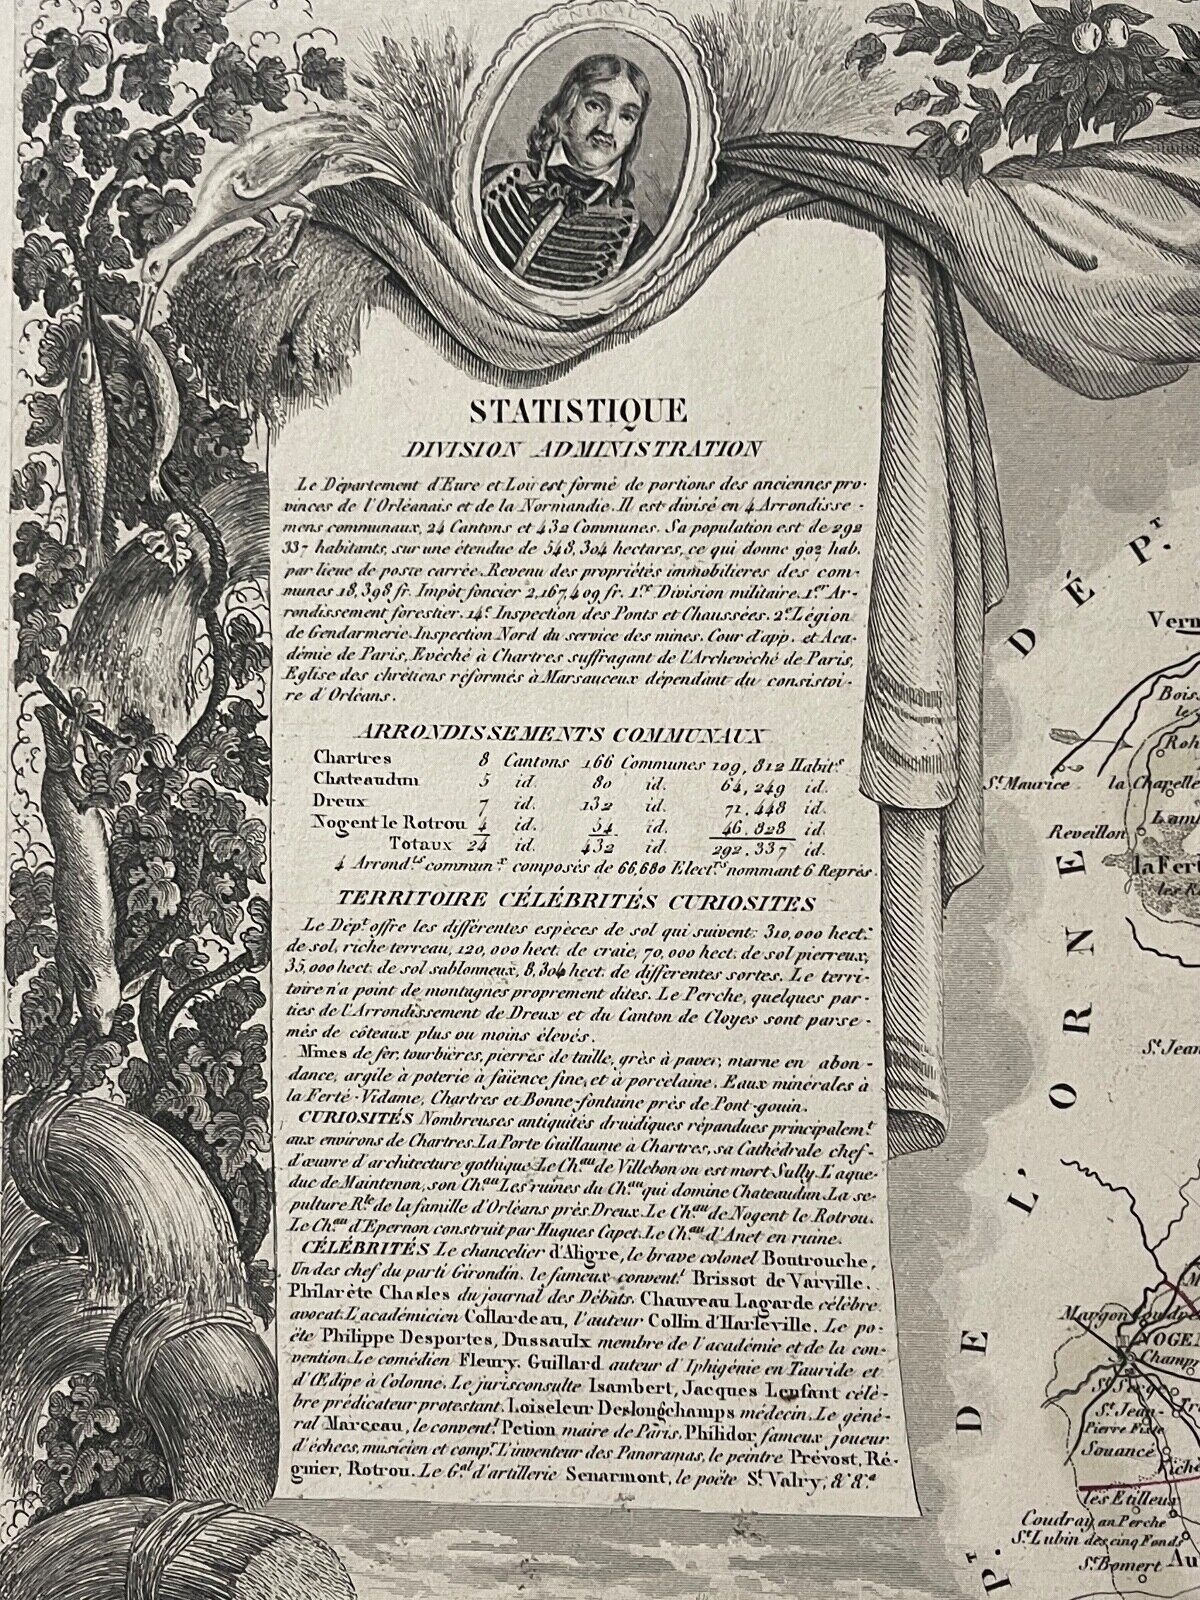 GÉNÉRAL
STATISTIQUE
DIVISION ADMINISTRATION
Le Département d'Eure et Loir est formé de portions des anciennes pro-
vinces de l'Orléanais et de la Normandie. Il est divisé en 4 Arrondisse-
mens communaux, 24 Cantons et 432 Communes. Sa population est de 292
337 habitants, sur une étendue de 548,304 hectares, ce qui donne 902 hab.
par lieue de poste carrée. Revenu des propriétés immobilieres des com-
munes 18,398 fr. Impôt foncier 2,167,409 fr. 1re Division militaire. 1er Ar-
rondissement forestier. 14e Inspection des Ponts et Chaussées. 2e Légion
de Gendarmerie. Inspection Nord du service des mines. Cour d'app. et Aca-
démie de Paris, Evêché à Chartres suffragant de l'Archevêché de Paris,
Eglise des chrétiens réformés à Marsauceux dépendant du consistoi-
re d'Orléans.
ARRONDISSEMENTS COMMUNAUX
Chartres 8 Cantons 166 Communes 109,812 Habits
Chateaudun 5 id. 80 id. 64,249 id.
Dreux 7 id. 132 id. 71,448 id.
Nogent le Rotrou 4 id. 54 id. 46,828 id.
Totaux 24 id. 432 id. 292,337 id.
4 Arrondts commun.x composés de 66,680 Elect.rs nommant 6 Représ.
TERRITOIRE CÉLÉBRITÉS CURIOSITES
Le Dépt offre les différentes espèces de sol qui suivent; 310,000 hect.
de sol, riche terreau, 120,000 hect. de craie, 70,000 hect. de sol pierreux,
35,000 hect. de sol sablonneux, 8,304 hect. de différentes sortes. Le terri-
toire n'a point de montagnes proprement dites. Le Perche, quelques par-
ties de l'Arrondissement de Dreux et du Canton de Cloyes sont parse-
més de côteaux plus ou moins élevés.
Mines de fer, tourbières, pierres de taille, grès à paver, marne en abon-
dance, argile à poterie à faïence fine, et à porcelaine. Eaux minérales à
la Ferté-Vidame, Chartres et Bonne-fontaine près de Pont-gouin.
CURIOSITÉS Nombreuses antiquités druidiques répandues principalem.t
aux environs de Chartres. La Porte Guillaume à Chartres, sa Cathédrale chef-
d'œuvre d'architecture gothique. Le Ch.au de Villebon ou est mort Sully. L'aque-
duc de Maintenon, son Ch.au Les ruines du Ch.au qui domine Chateaudun. La sé-
pulture Rle de la famille d'Orléans près Dreux. Le Ch.au de Nogent le Rotrou.
Le Ch.au d'Epernon construit par Hugues Capet. Le Ch.au d'Anet en ruine.
CÉLÉBRITÉS Le chancelier d'Aligre, le brave colonel Boutrouche,
Un des chef du parti Girondin, le fameux convent.l Brissot de Varville.
Philarète Chasles du journal des Débats. Chauveau Lagarde célèbre
avocat. L'académicien Collardeau, l'auteur Collin d'Harleville. Le po-
ète Philippe Desportes, Dussaulx membre de l'académie et de la con-
vention. Le comédien Fleury. Guillard auteur d'Iphigénie en Tauride et
d'Œdipe à Colonne. Le jurisconsulte Isambert, Jacques Lenfant célè-
bre prédicateur protestant. Loiseleur Deslongchamps médecin. Le géné-
ral Marceau, le convent.l Petion maire de Paris. Philidor fameux joueur
d'échecs, musicien et comp.r L'inventeur des Panoramas, le peintre Prévost, Ré-
gnier, Rotrou. Le G.al d'artillerie Senarmont, le poëte St Valry, & &.a
DÉPT. DE L'ORNE
Vern
Boiss
le
Roh
St Maurice
la Chapelle
Lam
Reveillon
la Fert
les R
St Jean
Margon
NOGEN
Champr
St Serge
St Jean-
Pierre Fixte
Souancé
Fiché
les Etilleux
Coudray au Perche
St Lubin des cinq Fonds
Au
St Bomert
DE
PT.